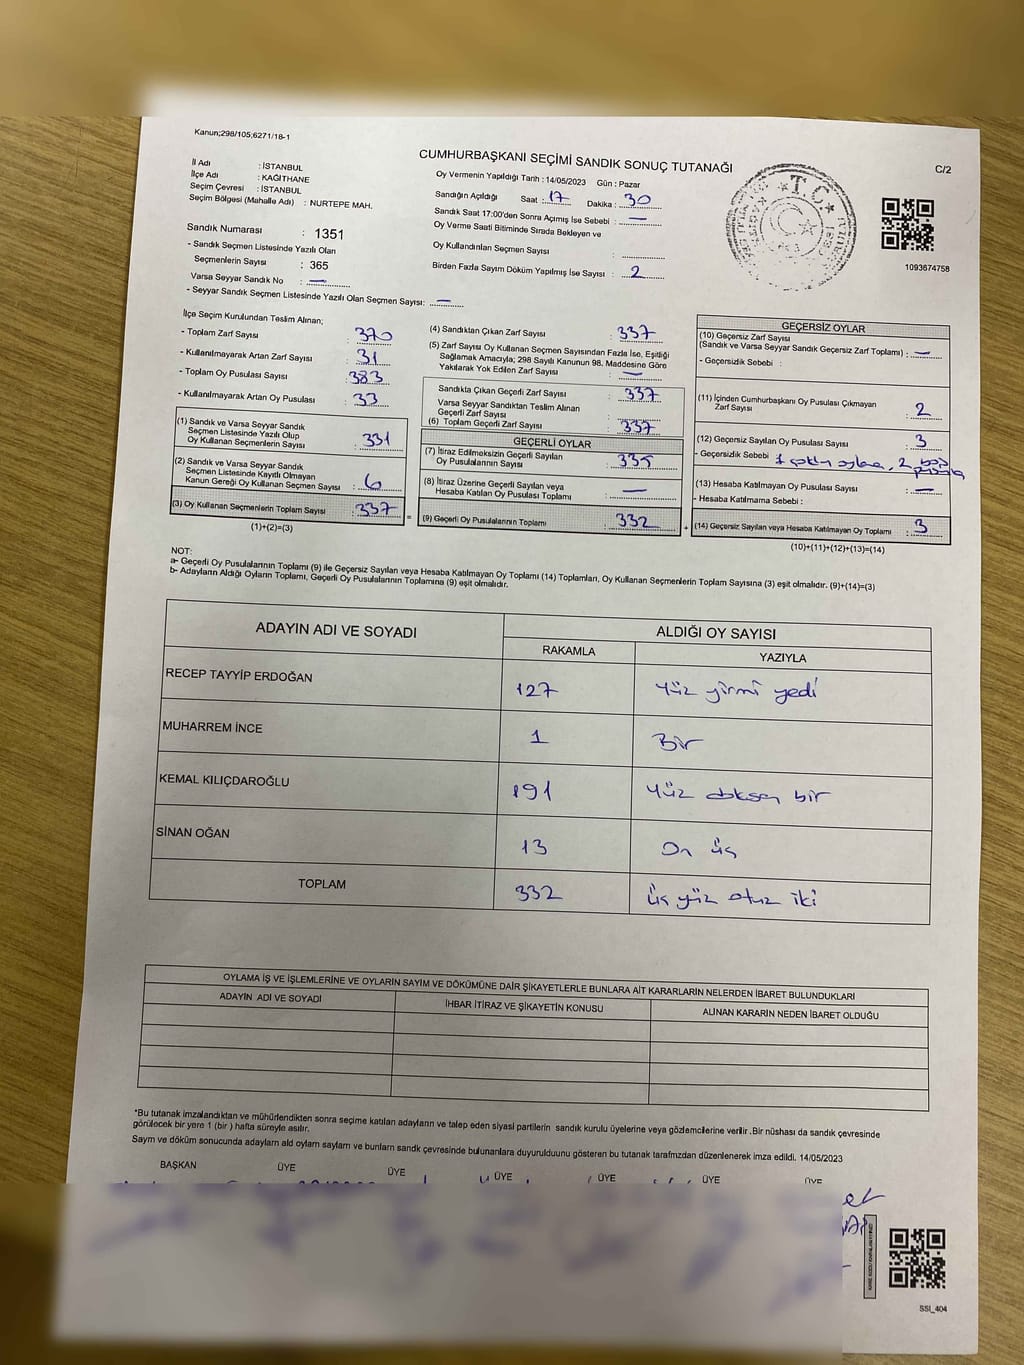 Kanun;298/105;6271/18-1
CUMHURBAŞKANI SEÇİMİ SANDIK SONUÇ TUTANAĞI
C/2
İl Adı : İSTANBUL
İlçe Adı : KAĞITHANE
Seçim Çevresi : İSTANBUL
Seçim Bölgesi (Mahalle Adı) : NURTEPE MAH.
Oy Vermenin Yapıldığı Tarih : 14/05/2023 Gün : Pazar
Sandığın Açıldığı Saat : 17 Dakika : 30
Sandık Saat 17:00'den Sonra Açımış İse Sebebi : —
Oy Verme Saati Bitiminde Sırada Bekleyen ve
Oy Kullandırılan Seçmen Sayısı :
Birden Fazla Sayım Döküm Yapılmış İse Sayısı : 2
T.C
1093674758
Sandık Numarası : 1351
- Sandık Seçmen Listesinde Yazılı Olan
Seçmenlerin Sayısı : 365
Varsa Seyyar Sandık No : —
- Seyyar Sandık Seçmen Listesinde Yazılı Olan Seçmen Sayısı: —
İlçe Seçim Kurulundan Teslim Alınan;
- Toplam Zarf Sayısı : 370
- Kullanılmayarak Artan Zarf Sayısı : 31
- Toplam Oy Pusulası Sayısı : 383
- Kullanılmayarak Artan Oy Pusulası : 33
(1) Sandık ve Varsa Seyyar Sandık
Seçmen Listesinde Yazılı Olup
Oy Kullanan Seçmenlerin Sayısı : 331
(2) Sandık ve Varsa Seyyar Sandık
Seçmen Listesinde Kayıtlı Olmayan
Kanun Gereği Oy Kullanan Seçmen Sayısı : 6
(3) Oy Kullanan Seçmenlerin Toplam Sayısı : 337
(1)+(2)=(3)
(4) Sandıktan Çıkan Zarf Sayısı : 337
(5) Zarf Sayısı Oy Kullanan Seçmen Sayısından Fazla İse, Eşitliği
Sağlamak Amacıyla; 298 Sayılı Kanunun 98. Maddesine Göre
Yakılarak Yok Edilen Zarf Sayısı : —
Sandıkta Çıkan Geçerli Zarf Sayısı : 337
Varsa Seyyar Sandıktan Teslim Alınan
Geçerli Zarf Sayısı :
(6) Toplam Geçerli Zarf Sayısı : 337
GEÇERLİ OYLAR
(7) İtiraz Edilmeksizin Geçerli Sayılan
Oy Pusulalarının Sayısı : 335
(8) İtiraz Üzerine Geçerli Sayılan veya
Hesaba Katılan Oy Pusulası Toplamı : —
= (9) Geçerli Oy Pusulalarının Toplamı : 332 +
GEÇERSİZ OYLAR
(10) Geçersiz Zarf Sayısı
(Sandık ve Varsa Seyyar Sandık Geçersiz Zarf Toplamı) : —
- Geçersizlik Sebebi :
(11) İçinden Cumhurbaşkanı Oy Pusulası Çıkmayan
Zarf Sayısı : 2
(12) Geçersiz Sayılan Oy Pusulası Sayısı : 3
- Geçersizlik Sebebi : 1 çoklu oylama, 2 boş pusula
(13) Hesaba Katılmayan Oy Pusulası Sayısı : —
- Hesaba Katılmama Sebebi :
(14) Geçersiz Sayılan veya Hesaba Katılmayan Oy Toplamı : 3
(10)+(11)+(12)+(13)=(14)
NOT:
a- Geçerli Oy Pusulalarının Toplamı (9) ile Geçersiz Sayılan veya Hesaba Katılmayan Oy Toplamı (14) Toplamları, Oy Kullanan Seçmenlerin Toplam Sayısına (3) eşit olmalıdır. (9)+(14)=(3)
b- Adayların Aldığı Oyların Toplamı, Geçerli Oy Pusulalarının Toplamına (9) eşit olmalıdır.
ADAYIN ADI VE SOYADI
ALDIĞI OY SAYISI
RAKAMLA YAZIYLA
RECEP TAYYİP ERDOĞAN 127 Yüz yirmi yedi
MUHARREM İNCE 1 Bir
KEMAL KILIÇDAROĞLU 191 Yüz doksan bir
SİNAN OĞAN 13 On üç
TOPLAM 332 üç yüz otuz iki
OYLAMA İŞ VE İŞLEMLERİNE VE OYLARIN SAYIM VE DÖKÜMÜNE DAİR ŞİKAYETLERLE BUNLARA AİT KARARLARIN NELERDEN İBARET BULUNDUKLARI
ADAYIN ADI VE SOYADI İHBAR İTİRAZ VE ŞİKAYETİN KONUSU ALINAN KARARIN NEDEN İBARET OLDUĞU
*Bu tutanak imzalandıktan ve mühürlendikten sonra seçime katılan adayların ve talep eden siyasi partilerin sandık kurulu üyelerine veya gözlemcilerine verilir .Bir nüshası da sandık çevresinde
görülecek bir yere 1 (bir ) hafta süreyle asılır.
Sayım ve döküm sonucunda adayların aldı oyların sayıları ve bunların sandık çevresinde bulunanlara duyurulduunu gösteren bu tutanak tarafımızdan düzenlenerek imza edildi. 14/05/2023
BAŞKAN ÜYE ÜYE ÜYE ÜYE ÜYE ÜYE
SSI_404